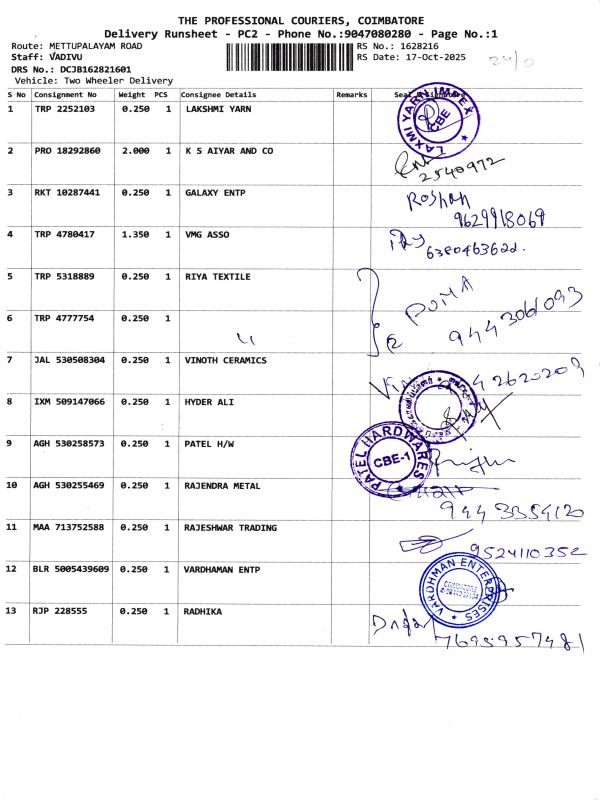 THE PROFESSIONAL COURIERS, COIMBATORE
Delivery Runsheet - PC2 - Phone No.:9047080280 - Page No.:1
Route: METTUPALAYAM ROAD RS No.: 1628216
Staff: VADIVU RS Date: 17-Oct-2025
DRS No.: DCJB162821601
Vehicle: Two Wheeler Delivery
S No Consignment No Weight PCS Consignee Details Remarks Seal & Signature
1 TRP 2252103 0.250 1 LAKSHMI YARN
LAXMI YARN IMPEX CBE
2 PRO 18292860 2.000 1 K S AIYAR AND CO
2540972
3 RKT 10287441 0.250 1 GALAXY ENTP Roshan
9629918069
4 TRP 4780417 1.350 1 VMG ASSO
6380463622.
5 TRP 5318889 0.250 1 RIYA TEXTILE
6 TRP 4777754 0.250 1 9443061093
7 JAL 530508304 0.250 1 VINOTH CERAMICS
8 IXM 509147066 0.250 1 HYDER ALI
9 AGH 530258573 0.250 1 PATEL H/W
PATEL HARDWARES CBE-1
10 AGH 530255469 0.250 1 RAJENDRA METAL
9443354120
11 MAA 713752588 0.250 1 RAJESHWAR TRADING
9524110352
12 BLR 5005439609 0.250 1 VARDHAMAN ENTP
VARDHMAN ENTERPRISES
13 RJP 228555 0.250 1 RADHIKA
7695957481